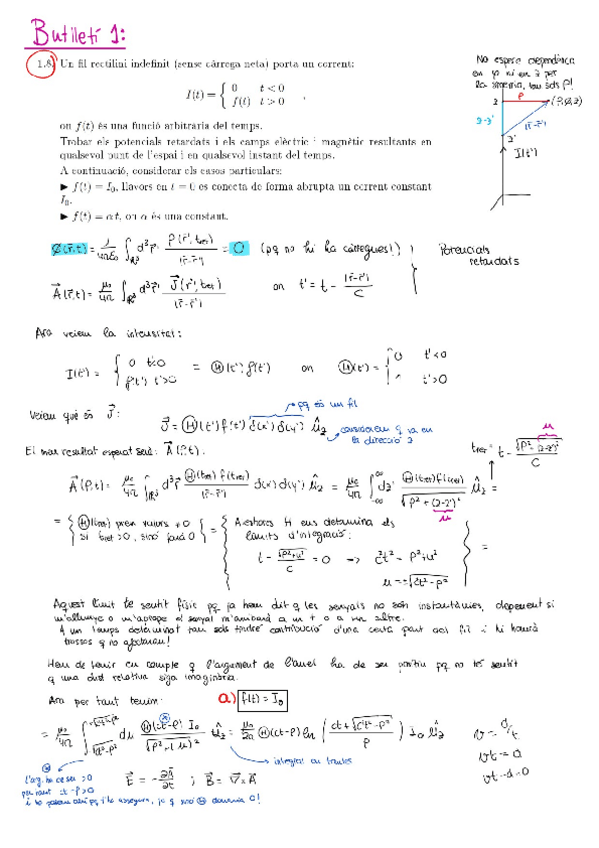 Butlletí 1:
1.8. Un fil rectilini indefinit (sense càrrega neta) porta un corrent:
I(t) = { 0 t < 0
f(t) t > 0 ,
on f(t) és una funció arbitrària del temps.
Trobar els potencials retardats i els camps elèctric i magnètic resultants en
qualsevol punt de l'espai i en qualsevol instant del temps.
A continuació, considerar els casos particulars:
► f(t) = I₀, llavors en t = 0 es conecta de forma abrupta un corrent constant
I₀.
► f(t) = αt, on α és una constant.
No espere dependència
en φ ni en z per
la simetria, tan sols ρ!
z ρ (ρ,φ,z)
z-z' |r̄-r̄'|
z'
I(t')
Φ(r̄,t) = 1/4πε₀ ∫ℝ³ d³r̄' ρ(r̄',t_ret)/|r̄-r̄'| = 0 (pq no hi ha càrregues!)
Potencials
retardats
A⃗(r̄,t) = μ₀/4π ∫ℝ³ d³r̄' J⃗(r̄',t_ret)/|r̄-r̄'| on t' = t - |r̄-r̄'|/c
Ara veiem la intensitat:
I(t') = { 0 t'<0
f(t') t'>0 = Ⓗ(t') f(t') on Ⓗ(t') = { 0 t'<0
1 t'>0
pq és un fil
Veiem què és J⃗:
J⃗ = Ⓗ(t') f(t') δ(x') δ(y') û_z
considerem q va en
la direcció z
El meu resultat esperat serà: A⃗(ρ,t).
A⃗(ρ,t) = μ₀/4π ∫ℝ³ d³r̄ Ⓗ(t_ret) f(t_ret)/|r̄-r̄'| δ(x') δ(y') û_z = μ₀/4π ∫ dz' Ⓗ(t_ret) f(t_ret)/√(ρ²+(z-z')²) û_z =
u
= { Ⓗ(t_ret) pren valors ≠0
si t_ret>0, sinó farà 0 } = { Aleshores H ens determina els
límits d'integració:
t - √(ρ²+u²)/c = 0 → c²t² = ρ²+u²
u = ±√(c²t²-ρ²) } =
Aquest límit té sentit físic pq ja hem dit q les senyals no són instantànies, depenent si
m'allunye o m'aprope el senyal m'arribarà a un t o a un altre.
A un temps determinat tan sols tindré contribució d'una certa part del fil i hi haurà
trossos q no afectaran!
Hem de tenir en compte q l'argument de l'arrel ha de ser positiu pq no té sentit
q una dist relativa siga imaginària.
Ara per tant tenim: a) f(t) = I₀
= μ₀/4π ∫ du Ⓗ(ct-ρ) I₀ û_z = μ₀/2π Ⓗ(ct-ρ) ln( (ct+√(c²t²-ρ²))/ρ ) I₀ û_z
v = d/t
vt = d
vt-d=0
integral en taules
E⃗ = -∂A⃗/∂t ; B⃗ = ∇⃗×A⃗